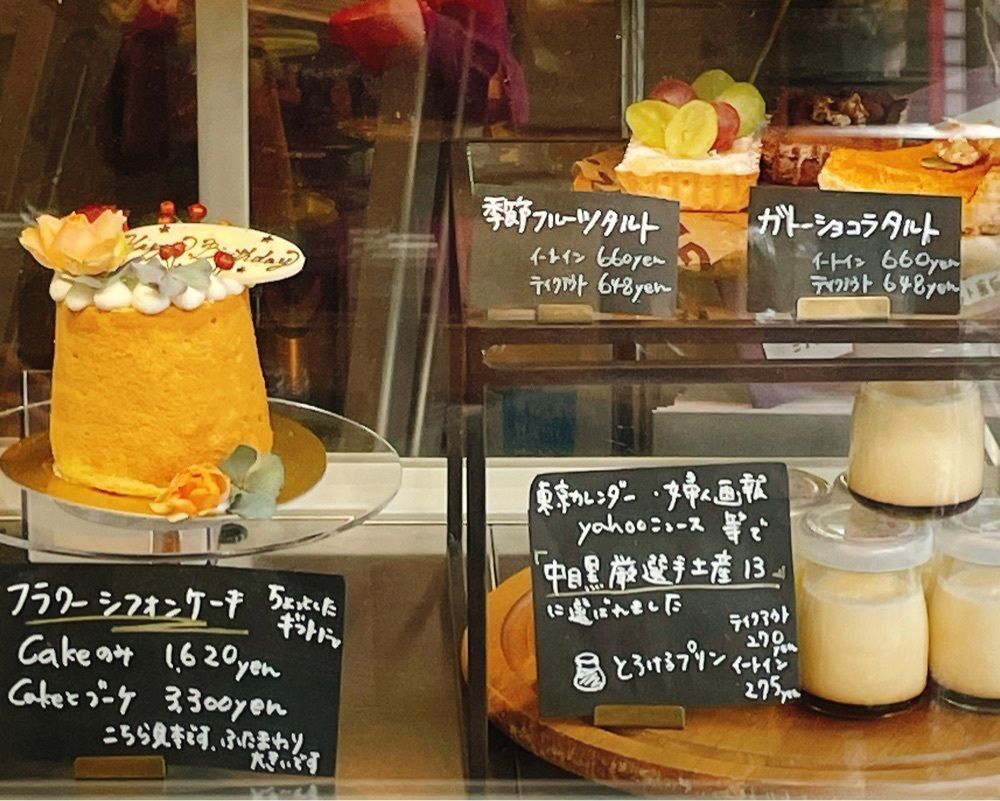 Happy Birthday
季節フルーツタルト
イートイン 660yen
テイクアウト 648yen
ガトーショコラタルト
イートイン 660yen
テイクアウト 648yen
東京カレンダー・婦人画報
yahooニュース 等で
「中目黒厳選手土産13」
に選ばれました
とろけるプリン
テイクアウト
270yen
イートイン
275yen
フラワーシフォンケーキ
ちょっとした
ギフトに
Cakeのみ 1,620yen
Cakeとブーケ 3,300yen
こちら見本です、ふたまわり
大きいです